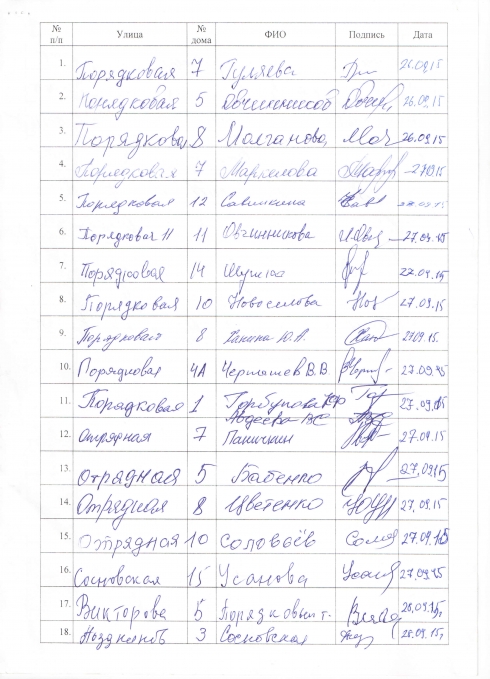 № п/п Улица № дома ФИО Подпись Дата
1. Порядковая 7 Гуляева 26.09.15
2. Порядковая 5 Овчинников 26.09.15
3. Порядковая 8 Молчанова 26.09.15
4. Порядковая 7 Маркелова 27.09.15
5. Порядковая 12 Савинкина
6. Порядковая 11 11 Овчинникова 27.09.15
7. Порядковая 14 27.09.15
8. Порядковая 10 Новоселова 27.09.15
9. Порядковая 8 Ханина Ю.А. 27.09.15
10. Порядковая 4А Чернышев В.В 27.09.15
11. Порядковая 1 Горбунова 27.09.15
Авдеева
12. Отрядная 7 Паничкин 27.09.15
13. Отрядная 5 Бабенко 27.09.15
14. Отрядная 8 Цветенко 27.09.15
15. Отрядная 10 Соловьёв 27.09.15
16. Сосновская 15 Усанова 27.09.15
17. Викторова 5 Порядковый т. 28.09.15г.
18. 3 Сосновская 28.09.15г.